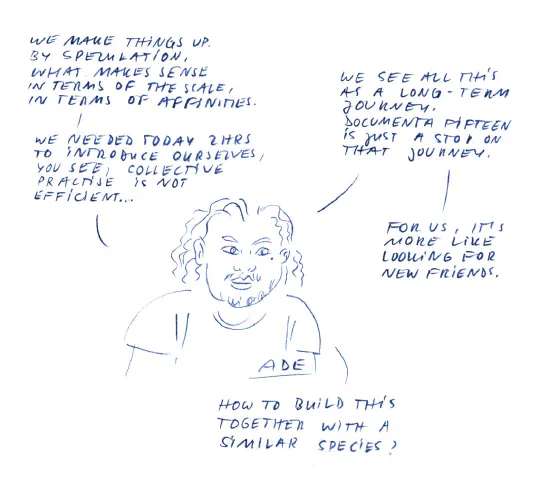 WE MAKE THINGS UP.
BY SPECULATION,
WHAT MAKES SENSE
IN TERMS OF THE SCALE,
IN TERMS OF AFFINITIES.
WE NEEDED TODAY 2HRS
TO INTRODUCE OURSELVES,
YOU SEE, COLLECTIVE
PRACTISE IS NOT
EFFICIENT...
WE SEE ALL THIS
AS A LONG-TERM
JOURNEY.
DOCUMENTA FIFTEEN
IS JUST A STOP ON
THAT JOURNEY.
FOR US, IT'S
MORE LIKE
LOOKING FOR
NEW FRIENDS.
ADE
HOW TO BUILD THIS
TOGETHER WITH A
SIMILAR SPECIES?